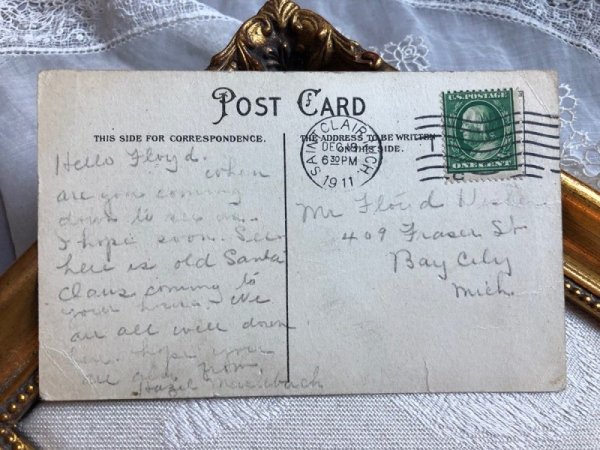 POST CARD
THIS SIDE FOR CORRESPONDENCE.
THE ADDRESS TO BE WRITTEN
ON THIS SIDE.
SAINT CLAIR, MICH.
DEC 19
6 30 PM
1911
U.S. POSTAGE
ONE CENT
Hello Floyd.
when
are you coming
down to see us.
I hope soon. See
here is old Santa
Claus coming to
your house. We
are all well down
here. hope your
all
from
Hazel
Mr Floyd
409 Fraser St
Bay City
Mich.